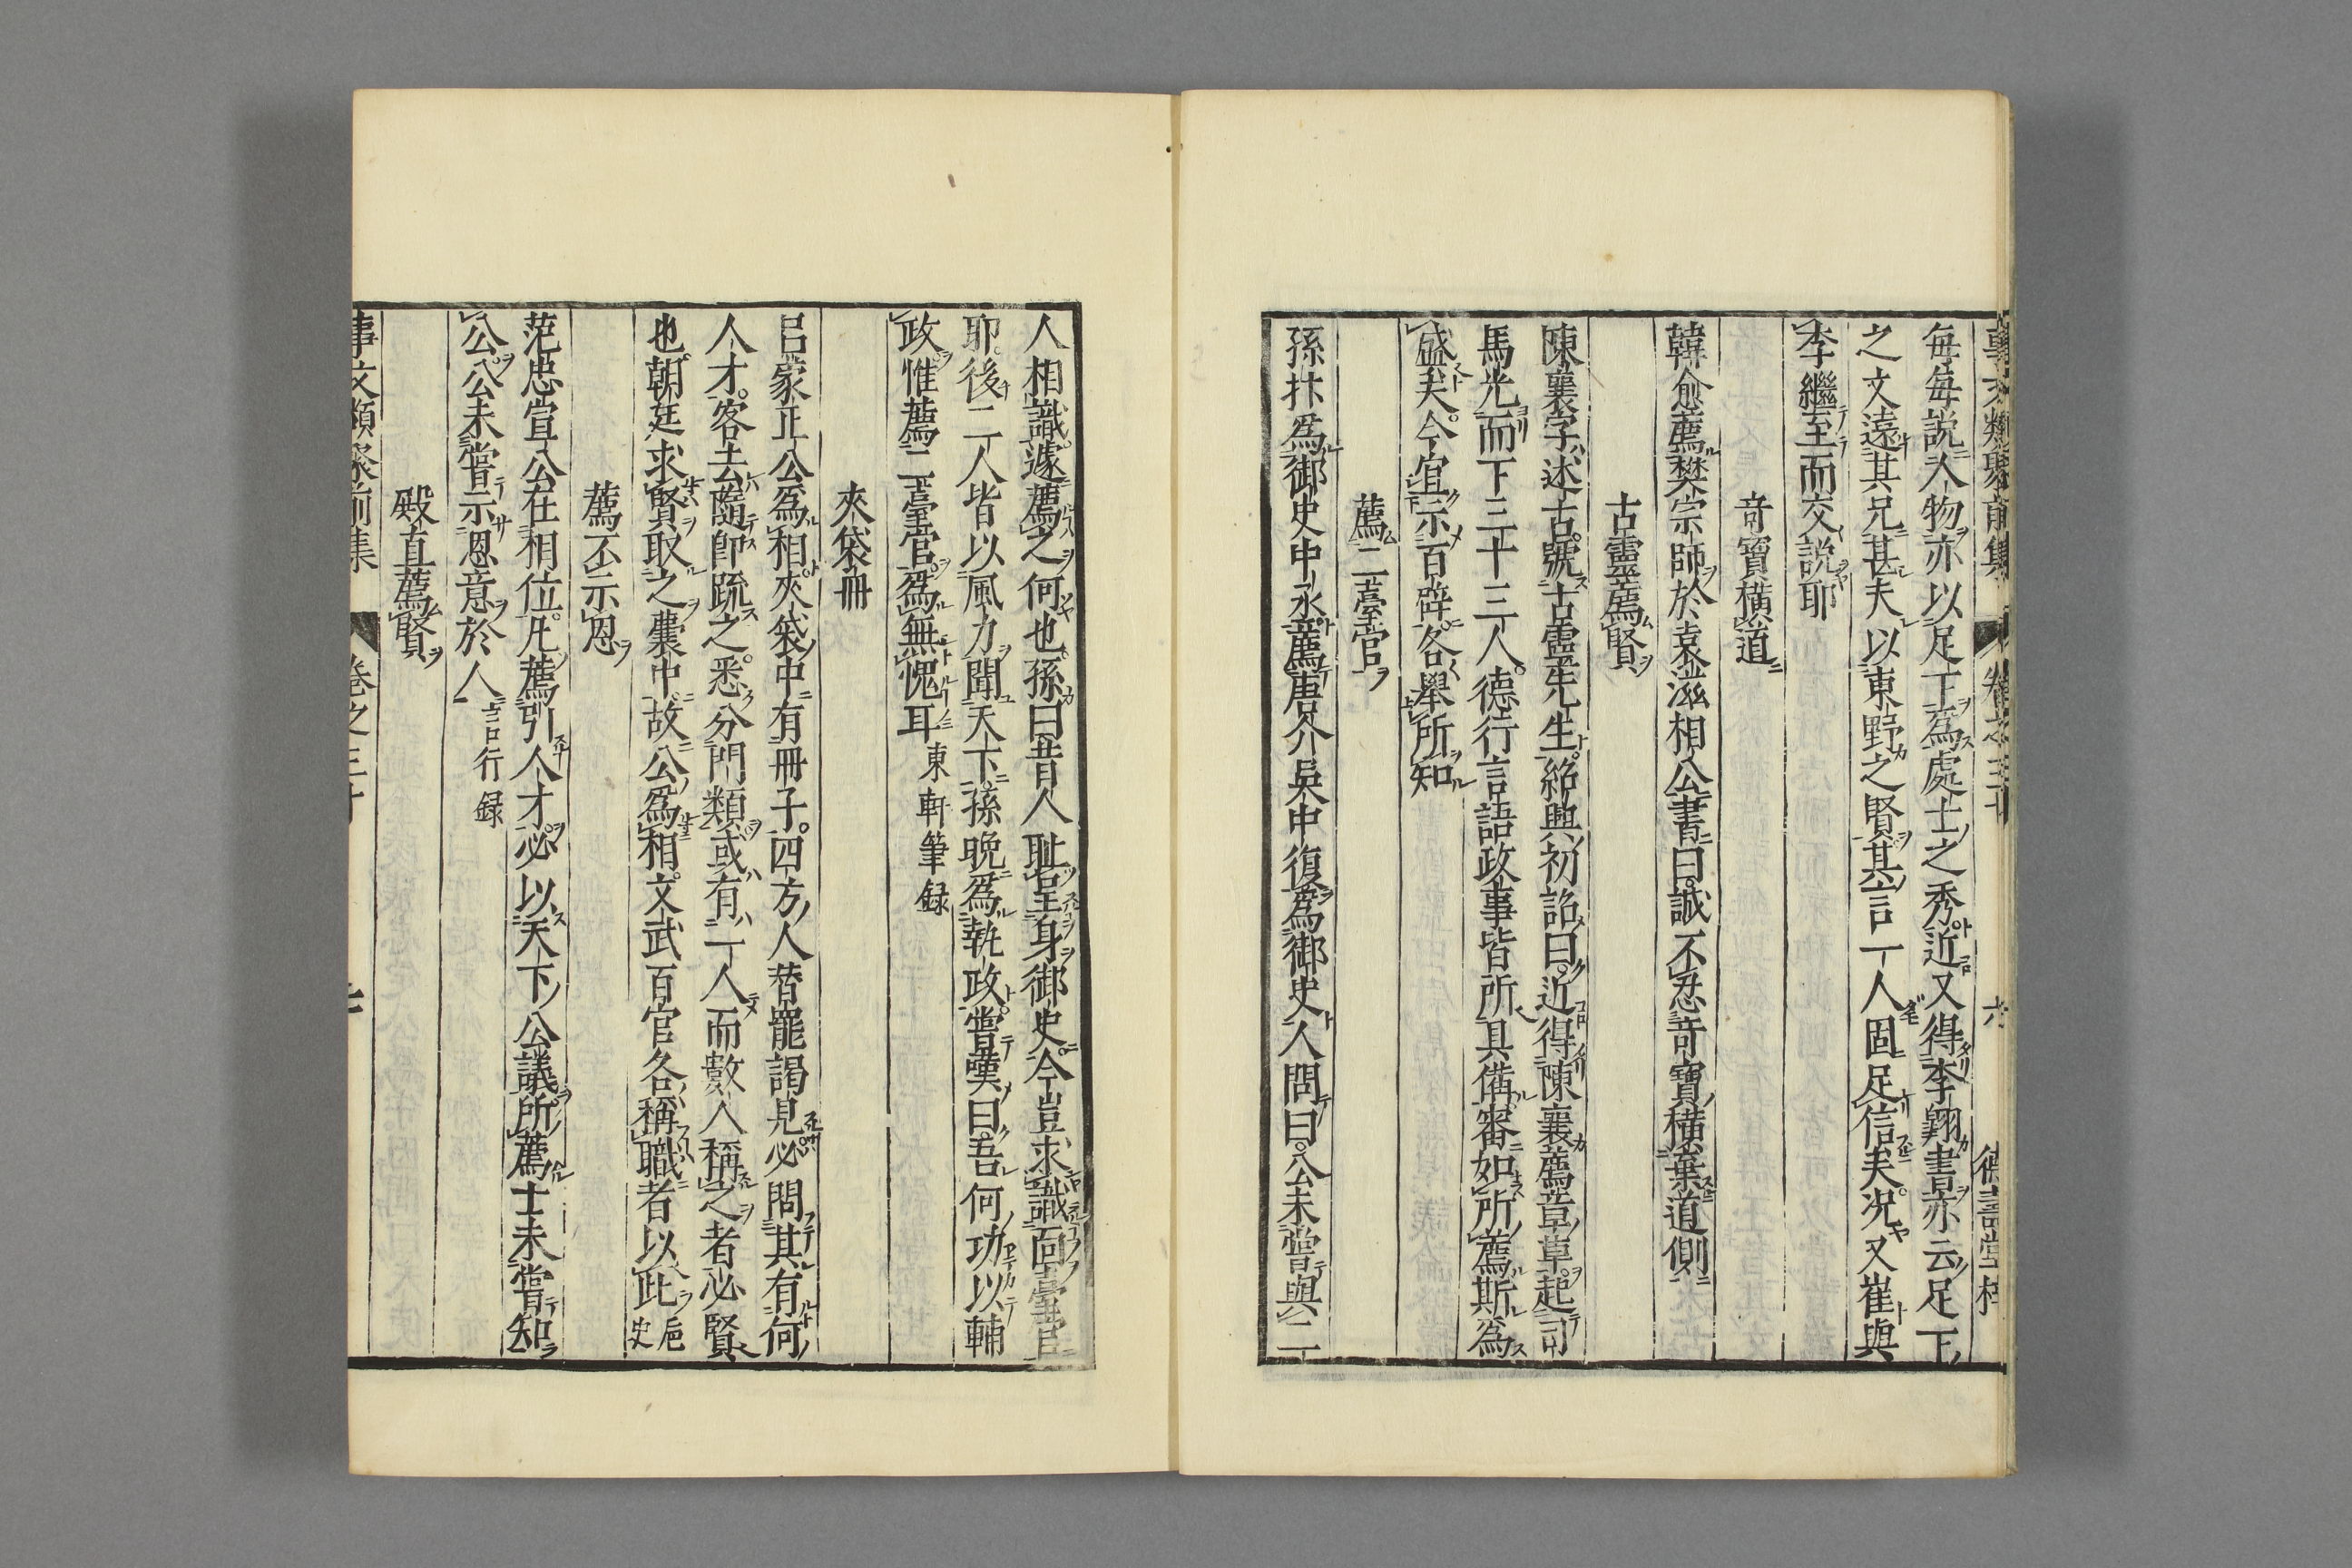 事文類聚前集 卷之三十 六 德壽堂梓
每每説人物亦以足下爲處士之秀近又得李翺書亦云足下
之文遠其兄甚夫以東野之賢其言一人固足信夫况又崔與
李繼至而交説耶
奇寶橫道
韓愈薦樊宗師於袁滋相公書曰誠不忍奇寶橫棄道側
古靈薦賢
陳襄字述古號古靈先生紹興初詔曰近得陳襄薦章草起司
馬光而下三十三人德行言語政事皆所具備審如所薦斯爲
盛夫今宜示百辟各舉所知
薦二臺官
孫抃爲御史中丞薦唐介吳中復爲御史人問曰公未嘗與二
人相識遽薦之何也孫曰昔人耻呈身御史今豈求識面臺官
耶後二人皆以風力聞天下孫晩爲執政嘗嘆曰吾何功以輔
政惟薦二臺官爲無愧耳東軒筆録
夾袋冊
呂蒙正公爲相夾袋中有冊子四方人替罷謁見必問其有何
人才客去隨即疏之悉分門類或有一人而數人稱之者必賢
也朝廷求賢取之囊中故公爲相文武百官各稱職者以此
薦不示恩
范忠宣公在相位凡薦引人才必以天下公議所薦士未嘗知
公公未嘗示恩意於人言行録
殿直薦賢
事文類聚前集 卷之三十